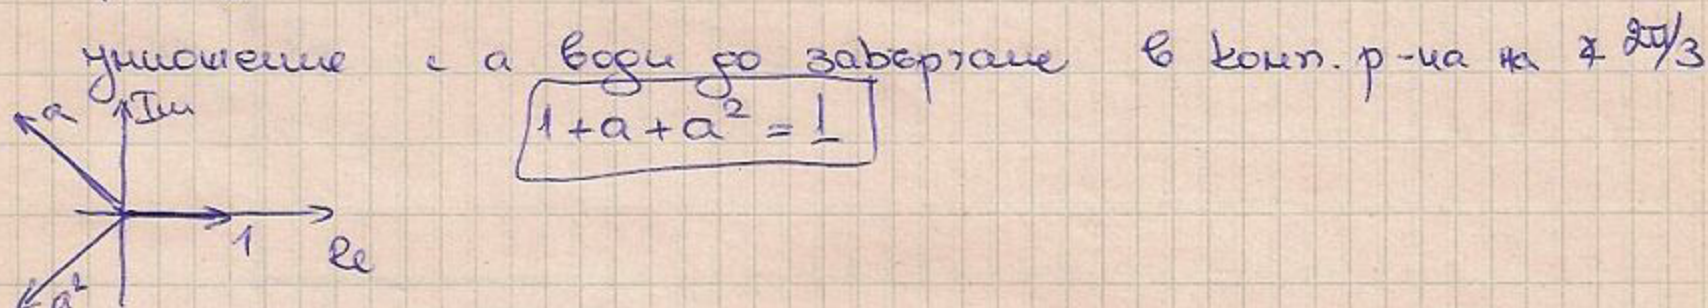 умножение с a води до завъртане в комп. р-на на ∡ 2π/3
a Im
1 + a + a² = 1
1 Re
a²